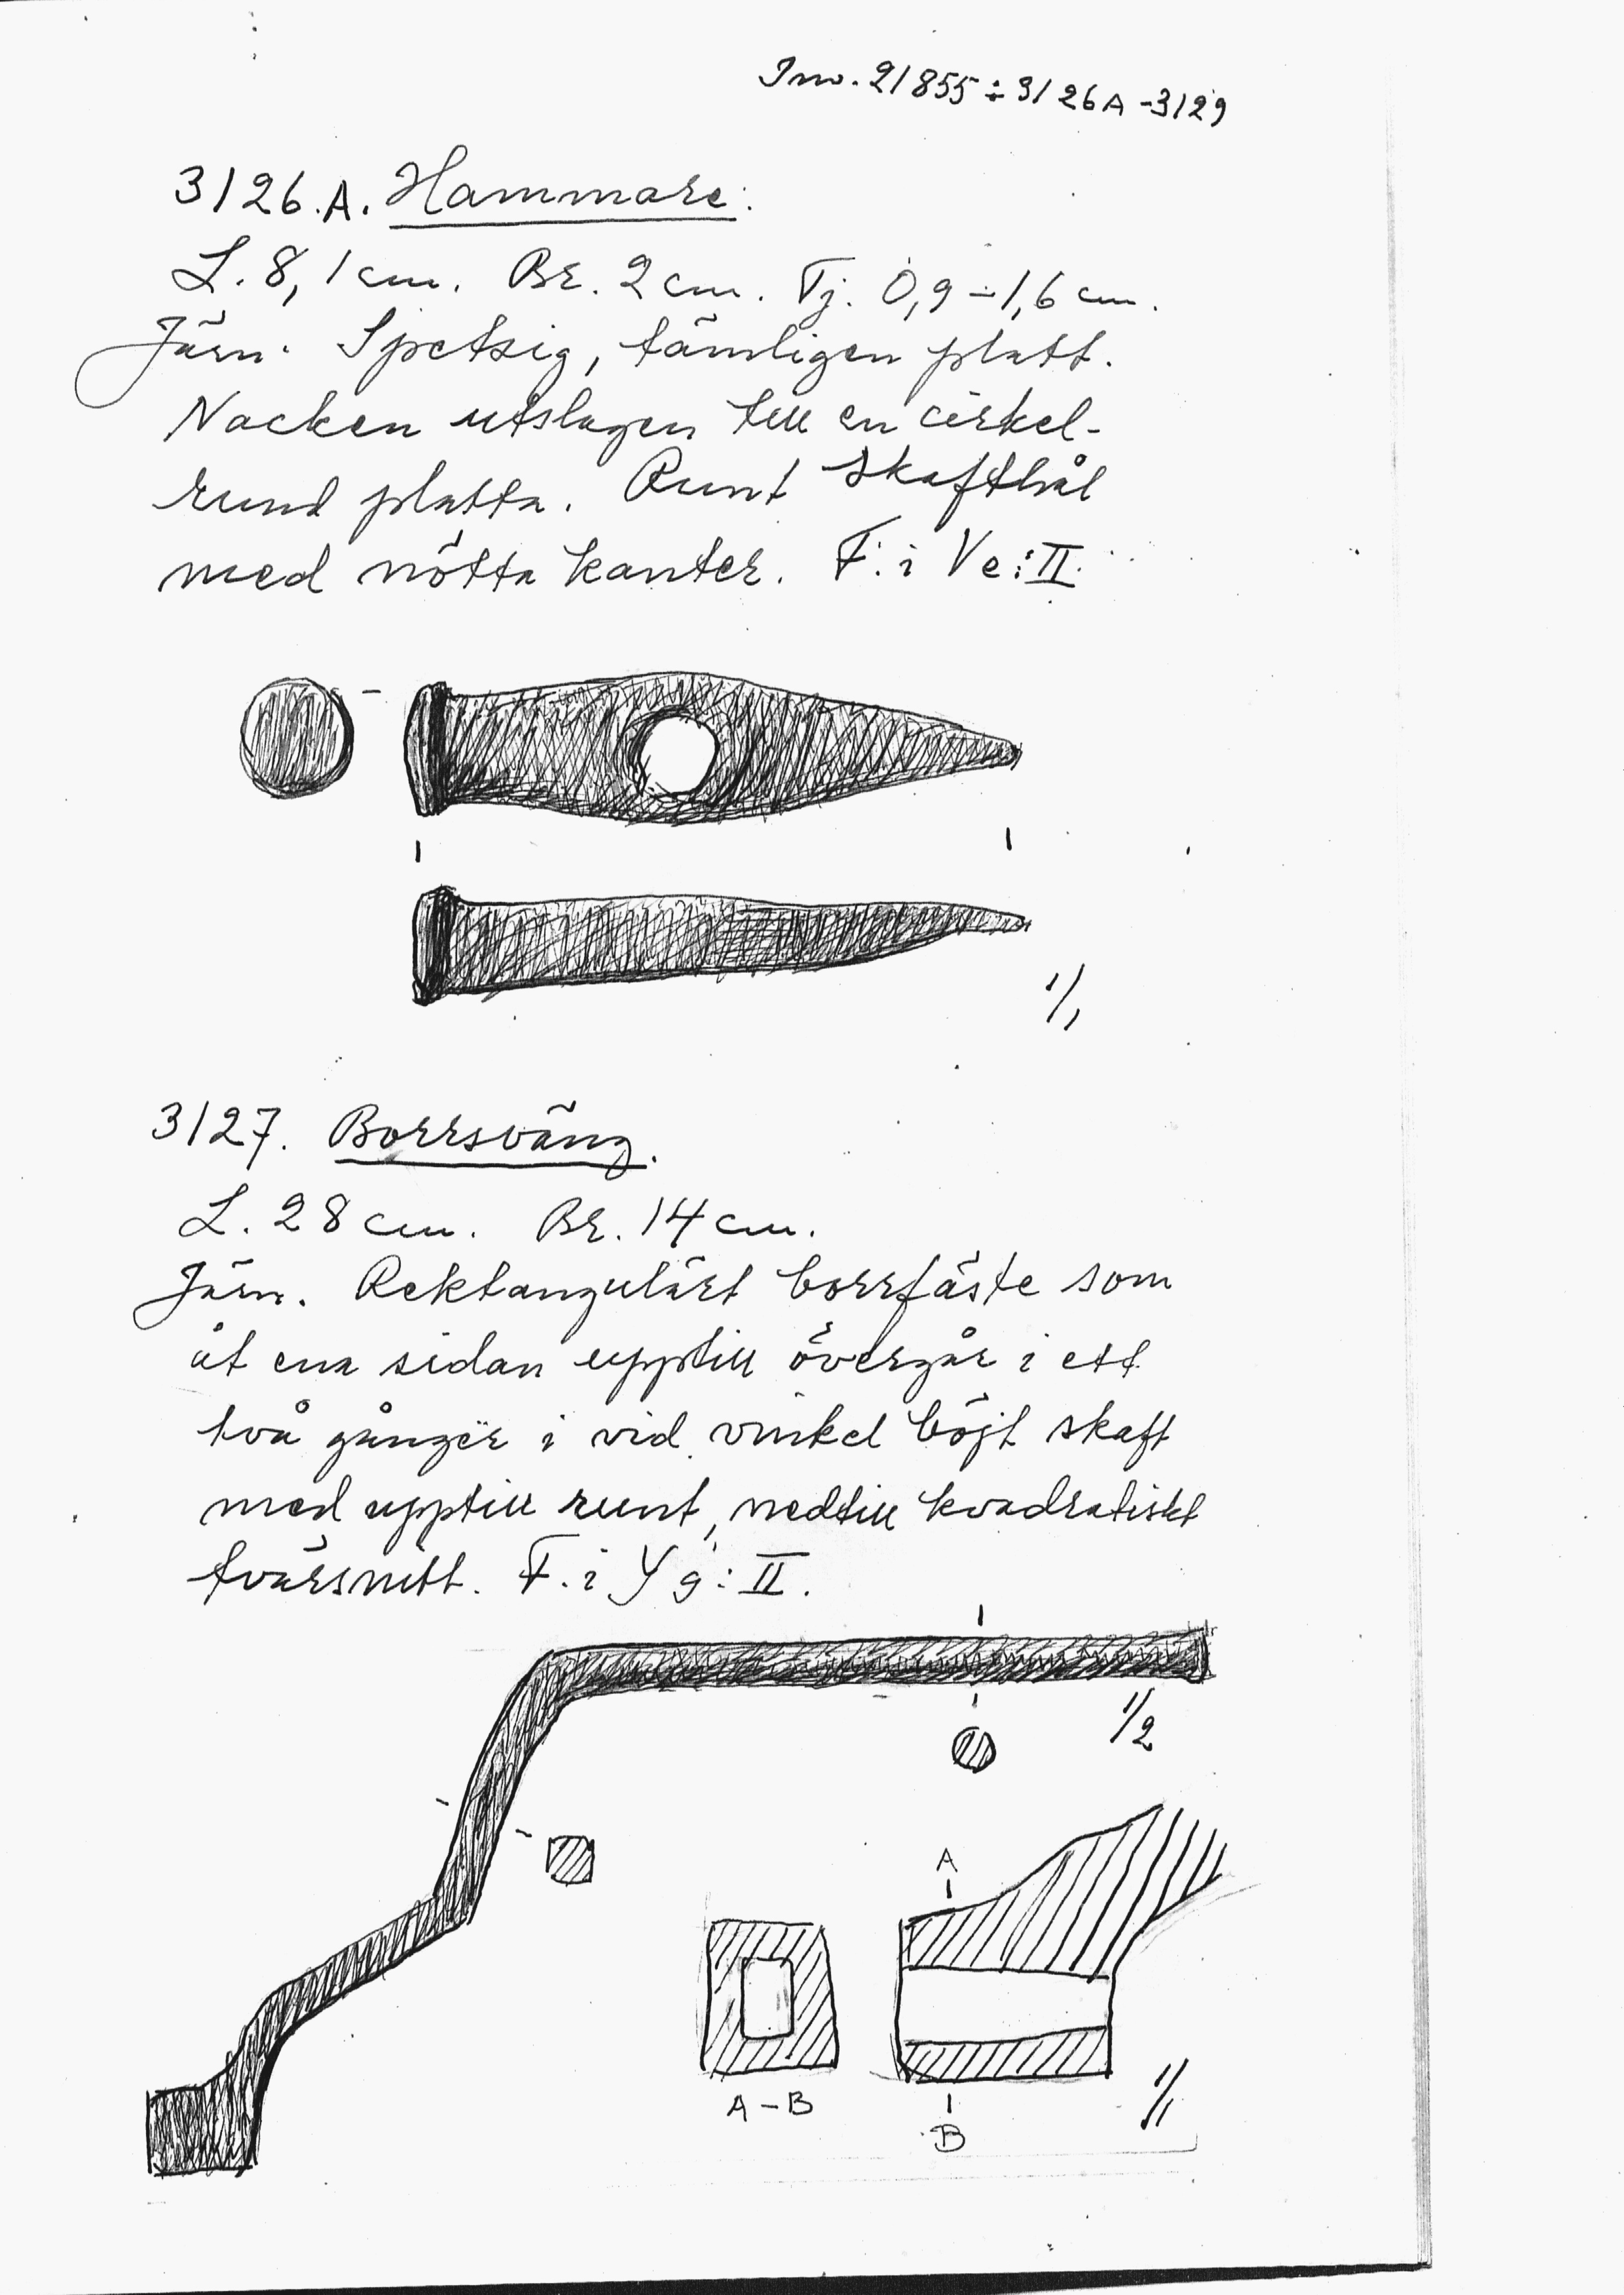 Inv. 21855 ÷ 3126A - 3129
3126.A. Hammare:
L. 8,1 cm. Br. 2 cm. Tj. 0,9 - 1,6 cm.
Järn. Spetsig, tämligen platt.
Nacken utslagen till en cirkel-
rund platta. Runt skafthål
med nötta kanter. F. i Ve:II.
1/1
3127. Borrsväng.
L. 28 cm. Br. 14 cm.
Järn. Rektangulärt borrfäste som
åt ena sidan upptill övergår i ett
två gånger i vid vinkel böjt skaft
med upptill runt, nedtill kvadratiskt
tvärsnitt. F. i Yg: II.
1/2
A
A - B
B
1/1